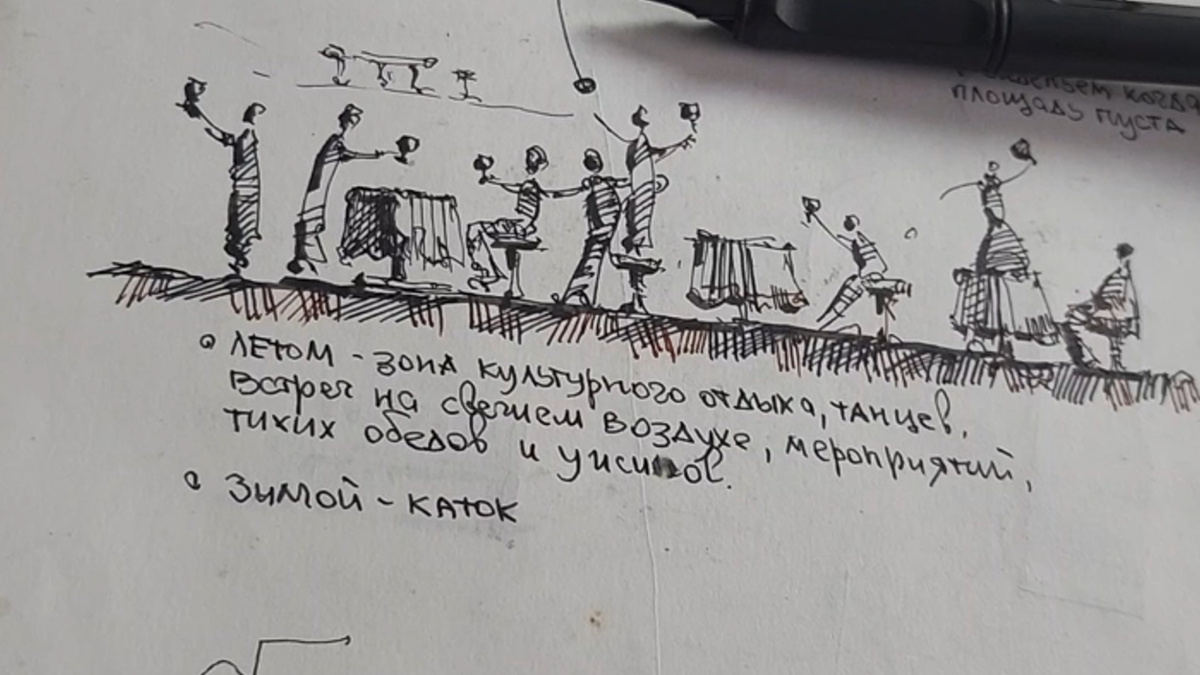 когда
площадь пуста
• ЛЕТОМ - зона культурного отдыха, танцев,
встреч на свежем воздухе, мероприятий,
тихих обедов и ужинов.
• Зимой - каток